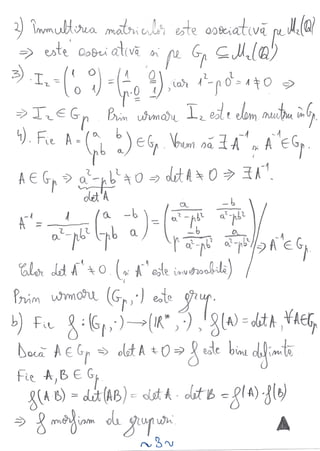 2) Înmulțirea matricelor este asociativă pe M₂(ℚ)
⇒ este asociativă și pe Gₚ ⊆ M₂(ℚ)
3). I₂ = (1 0; 0 1) = (1 0; p·0 1), iar 1² - p·0² = 1 ≠ 0 ⇒
⇒ I₂ ∈ Gₚ. Prin urmare I₂ este elem neutru în Gₚ.
4). Fie A = (a b; pb a) ∈ Gₚ. Vrem să ∃ A⁻¹ și A⁻¹ ∈ Gₚ.
A ∈ Gₚ ⇒ a² - pb² ≠ 0 ⇒ det A ≠ 0 ⇒ ∃ A⁻¹.
det A
A⁻¹ = 1/(a² - pb²) (a -b; -pb a) = (a/(a² - pb²) -b/(a² - pb²); p·-b/(a² - pb²) a/(a² - pb²)) ⇒ A⁻¹ ∈ Gₚ
Clar det A⁻¹ ≠ 0 (și A⁻¹ este inversabilă)
Prin urmare (Gₚ, ·) este grup.
b) Fie f : (Gₚ, ·) → (ℝ*, ·), f(A) = det A, ∀ A ∈ Gₚ
Dacă A ∈ Gₚ ⇒ det A ≠ 0 ⇒ f este bine definită
Fie A, B ∈ Gₚ
f(A·B) = det(AB) = det A · det B = f(A)·f(B)
⇒ f morfism de grupuri.
~3~